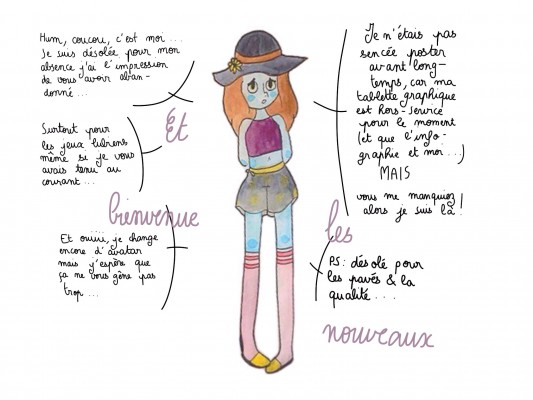 Hum, coucou, c'est moi ...
Je suis désolée pour mon
absence j'ai l'impression
de vous avoir aban-
donné ...
Surtout pour
les jeux libriens
même si je vous
avais tenu au
courant ...
Et
bienvenue
Et ouiii, je change
encore d'avatar
mais j'espère que
ça ne vous gêne pas
trop ...
Je n'étais pas
sencée poster
avant long-
temps, car ma
tablette graphique
est hors-service
pour le moment
(et que l'info-
graphie et moi ...)
MAIS
vous me manquiez
alors je suis là !
les
PS: désolé pour
les pavés & la
qualité ...
nouveaux